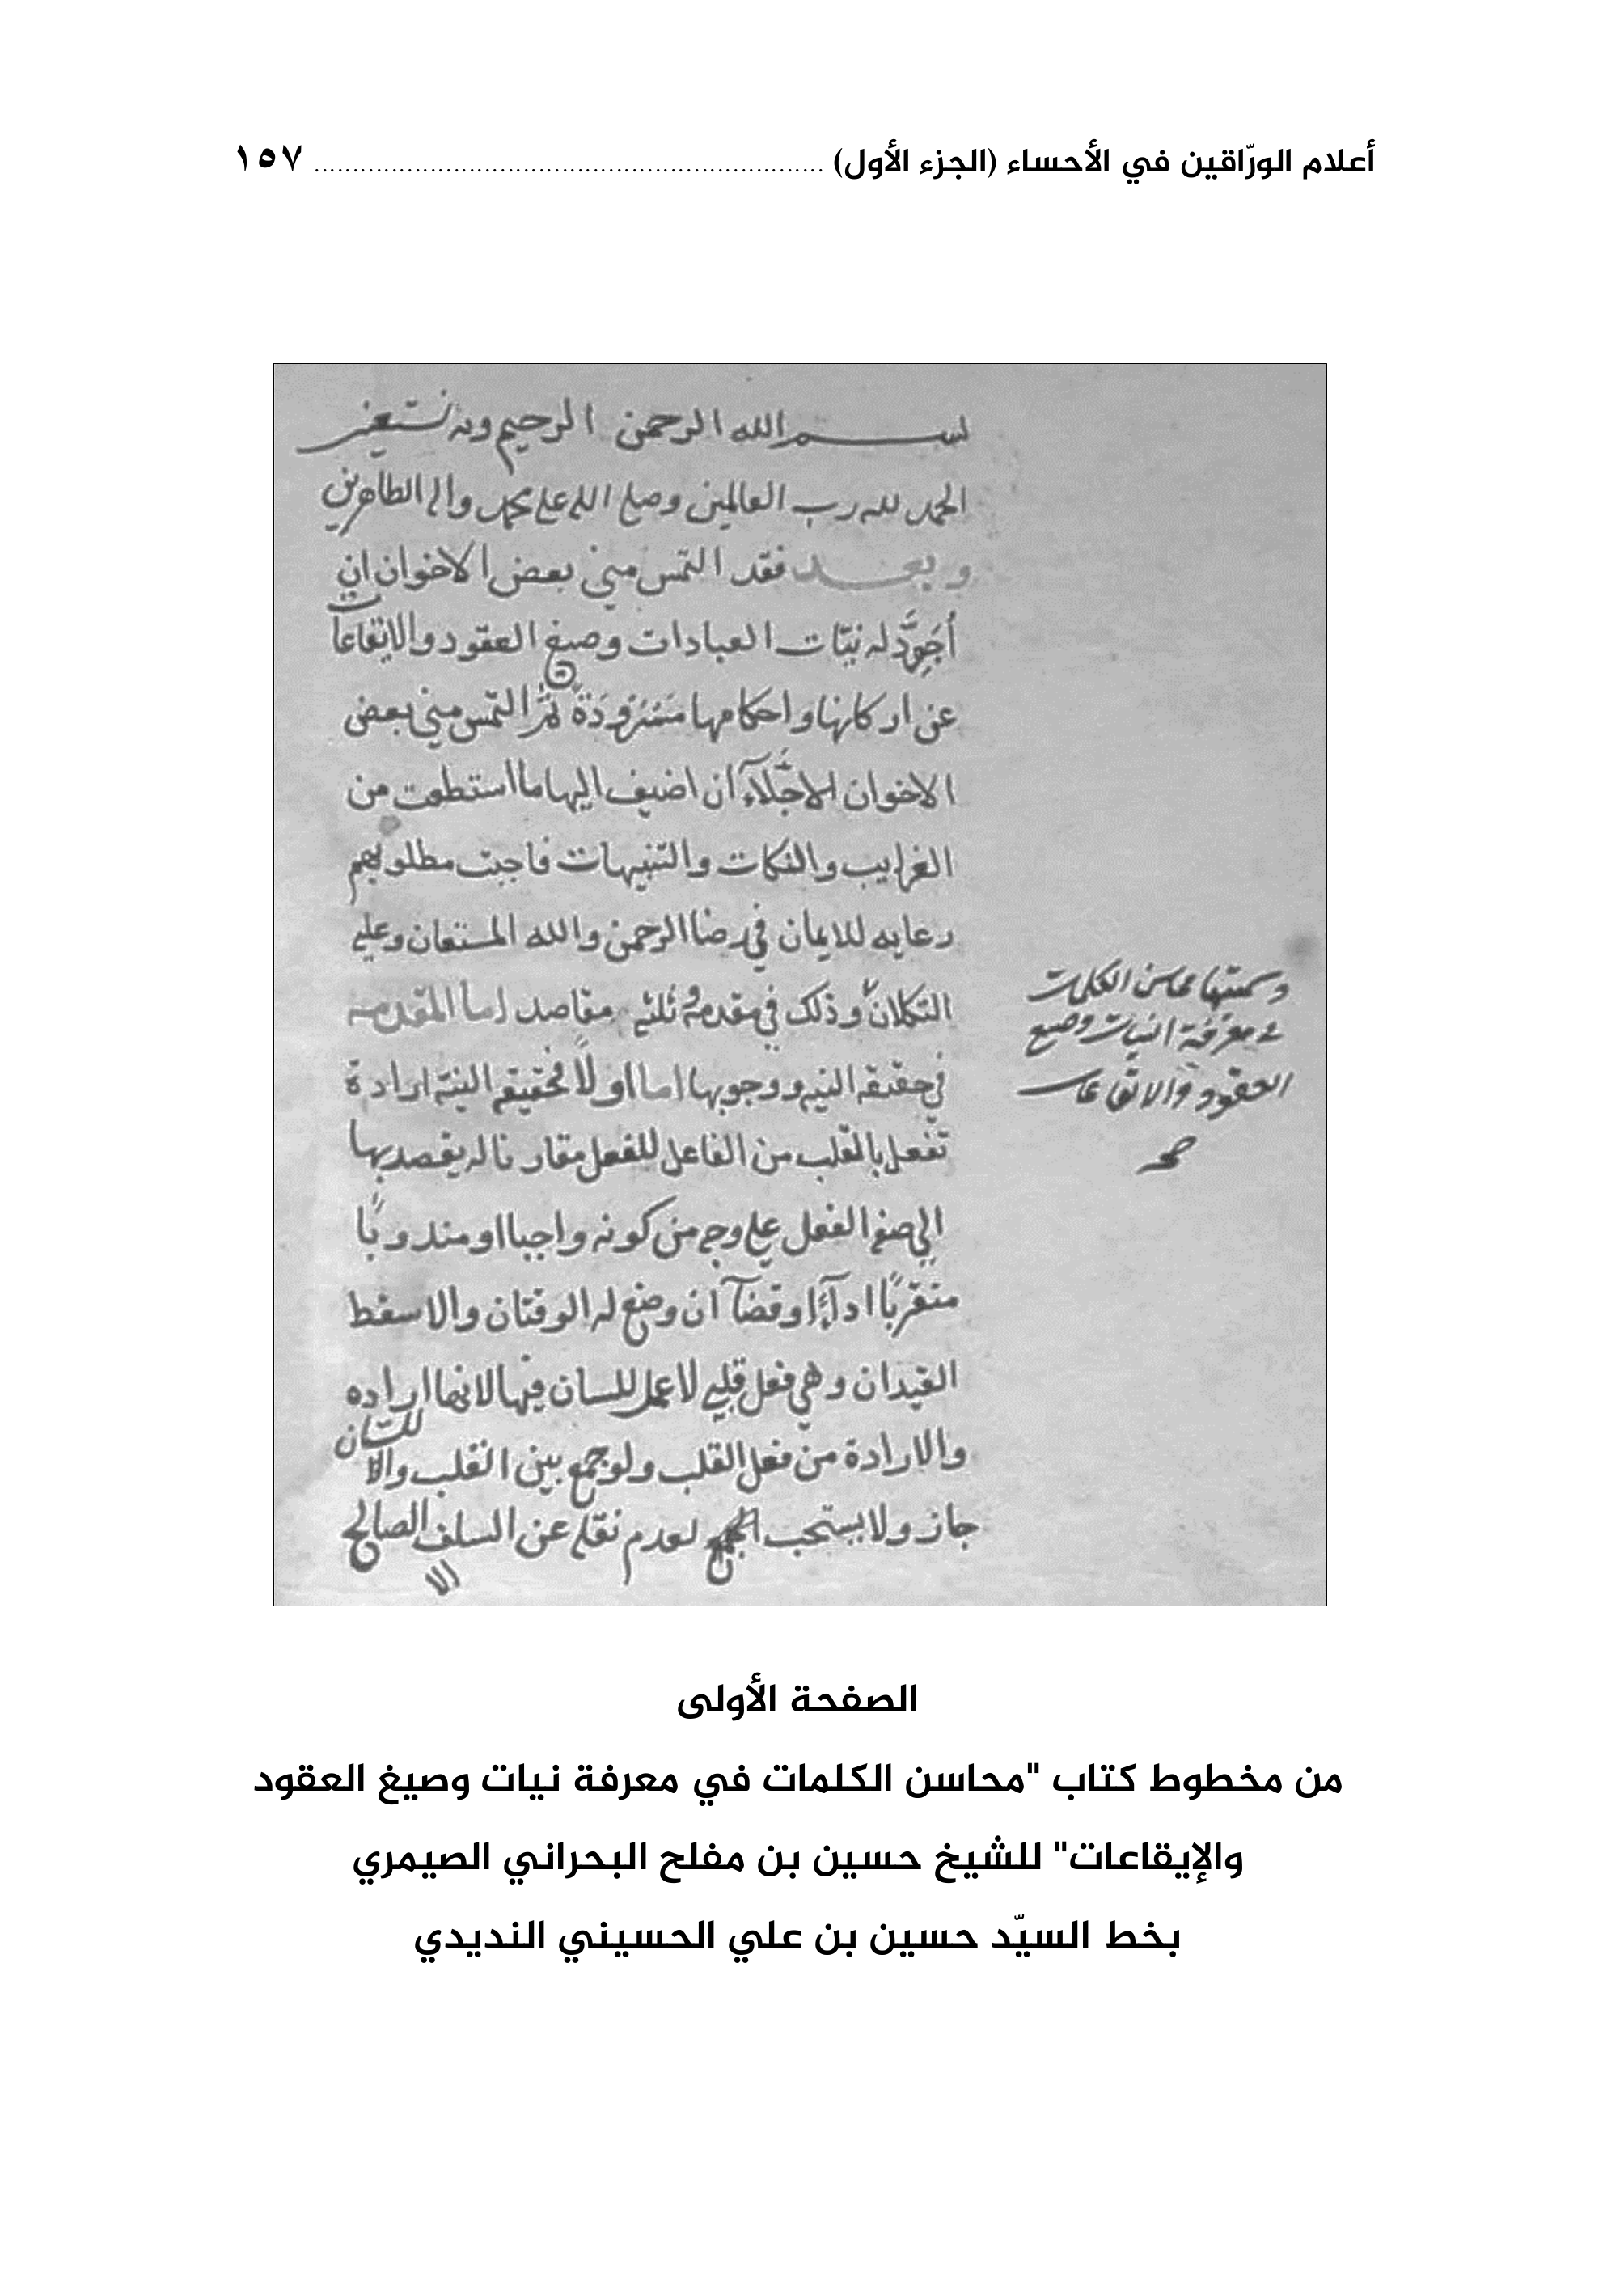 أعلام الورّاقين في الأحساء (الجزء الأول) ................................................................ ١٥٧
بسم الله الرحمن الرحيم وبه نستعين
الحمد لله رب العالمين وصلى الله على محمد واله الطاهرين
وبعد فقد التمس مني بعض الاخوان ان
أُجَوِّدَ له نيّات العبادات وصيغ العقود والايقاعات
عن اركانها واحكامها ثمّ التمس مني بعض
الاخوان الاجلّاء آن اضيف اليها ما استطعت من
الغرايب والنكات والتنبيهات فاجبت مطلوبهم
رعايه للايمان في رضا الرحمن والله المستعان وعليه
التكلان وذلك في مقدمة وثلثة مقاصد اما المقدمة
في حقيقة النيه ووجوبها اما اولًا فحقيقة النيّة ارادة
تفعل بالقلب من الفاعل للفعل مقارنا له يقصد بها
الفعل على وجه من كونه واجبا او مندوبًا
متقربًا اداءً او قضآ ان وضع له الوقتان والا سقط
القيدان وهي فعل قلبي لا عمل للسان فيها لانها اراده
والارادة من فعل القلب ولو جمع بين القلب واللسان
جاز ولا يستحب الجمع لعدم نقله عن السلف الصالح
الا
وسميتها محاسن الكلمات
في معرفة النيات وصيغ
العقود والايقاعات
صح
الصفحة الأولى
من مخطوط كتاب "محاسن الكلمات في معرفة نيات وصيغ العقود
والإيقاعات" للشيخ حسين بن مفلح البحراني الصيمري
بخط السيّد حسين بن علي الحسيني النديدي